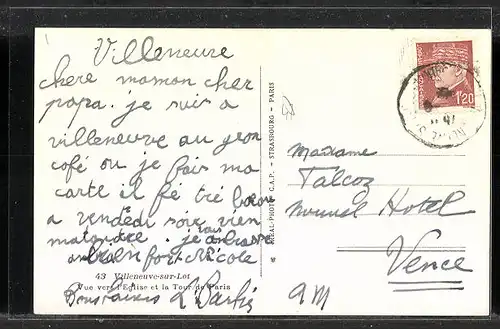 Villeneuve
chere maman cher
papa. je suis a
villeneuve au gron
café ou je fais ma
carte il fé tré beau
a vendedi soir vien
matandre. je vous anbrasse
bien fort Nicole
43 Villeneuve-sur-Lot
Vue vers l'Eglise et la Tour de Paris
RÉAL-PHOTO C.A.P. - STRASBOURG - PARIS
1f20
Madame
Talcoz
Nouvel Hotel
Vence
A M